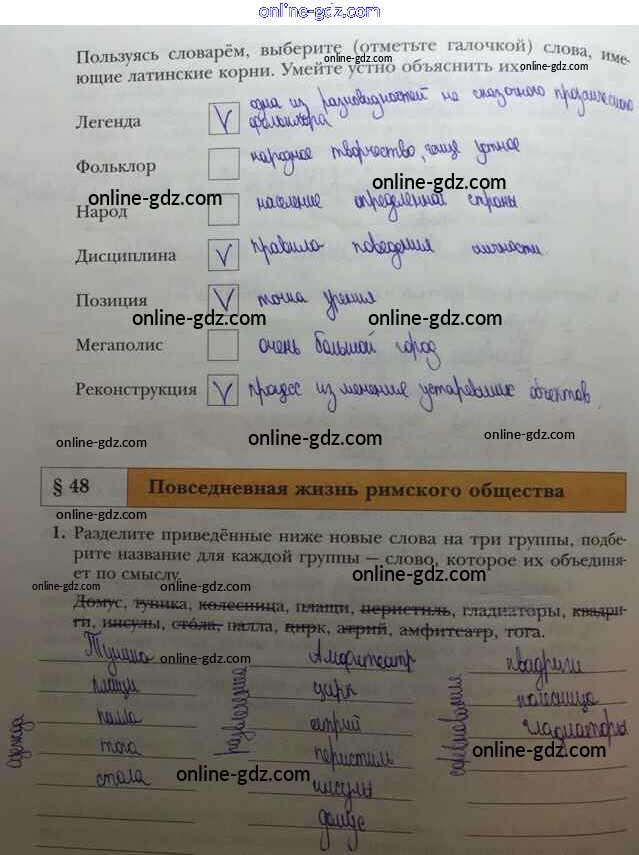 online-gdz.com
Пользуясь словарём, выберите (отметьте галочкой) слова, име-
online-gdz.com
ющие латинские корни. Умейте устно объяснить их
online-gdz.com
одна из разновидностей не сказочного прозаического
Легенда V фольклора
Фольклор народное творчество, чаще устное
online-gdz.com online-gdz.com
Народ население определенной страны.
Дисциплина V правила поведения личности.
Позиция V точка зрения
online-gdz.com online-gdz.com
Мегаполис очень большой город
Реконструкция V процесс изменения устаревших объектов.
online-gdz.com online-gdz.com online-gdz.com
§ 48 Повседневная жизнь римского общества
online-gdz.com
1. Разделите приведённые ниже новые слова на три группы, подбе-
рите название для каждой группы — слово, которое их объединя-
ет по смыслу.
online-gdz.com online-gdz.com online-gdz.com
Домус, туника, колесница, плащи, перистиль, гладиаторы, квадри-
ги, инсулы, стола, палла, цирк, атрий, амфитеатр, тога.
online-gdz.com online-gdz.com
Туника Амфитеатр квадриги
плащи цирк колесница
палла атрий гладиаторы
тога перистиль
стола инсулы
домус
одежда развлечение соревнования
online-gdz.com online-gdz.com